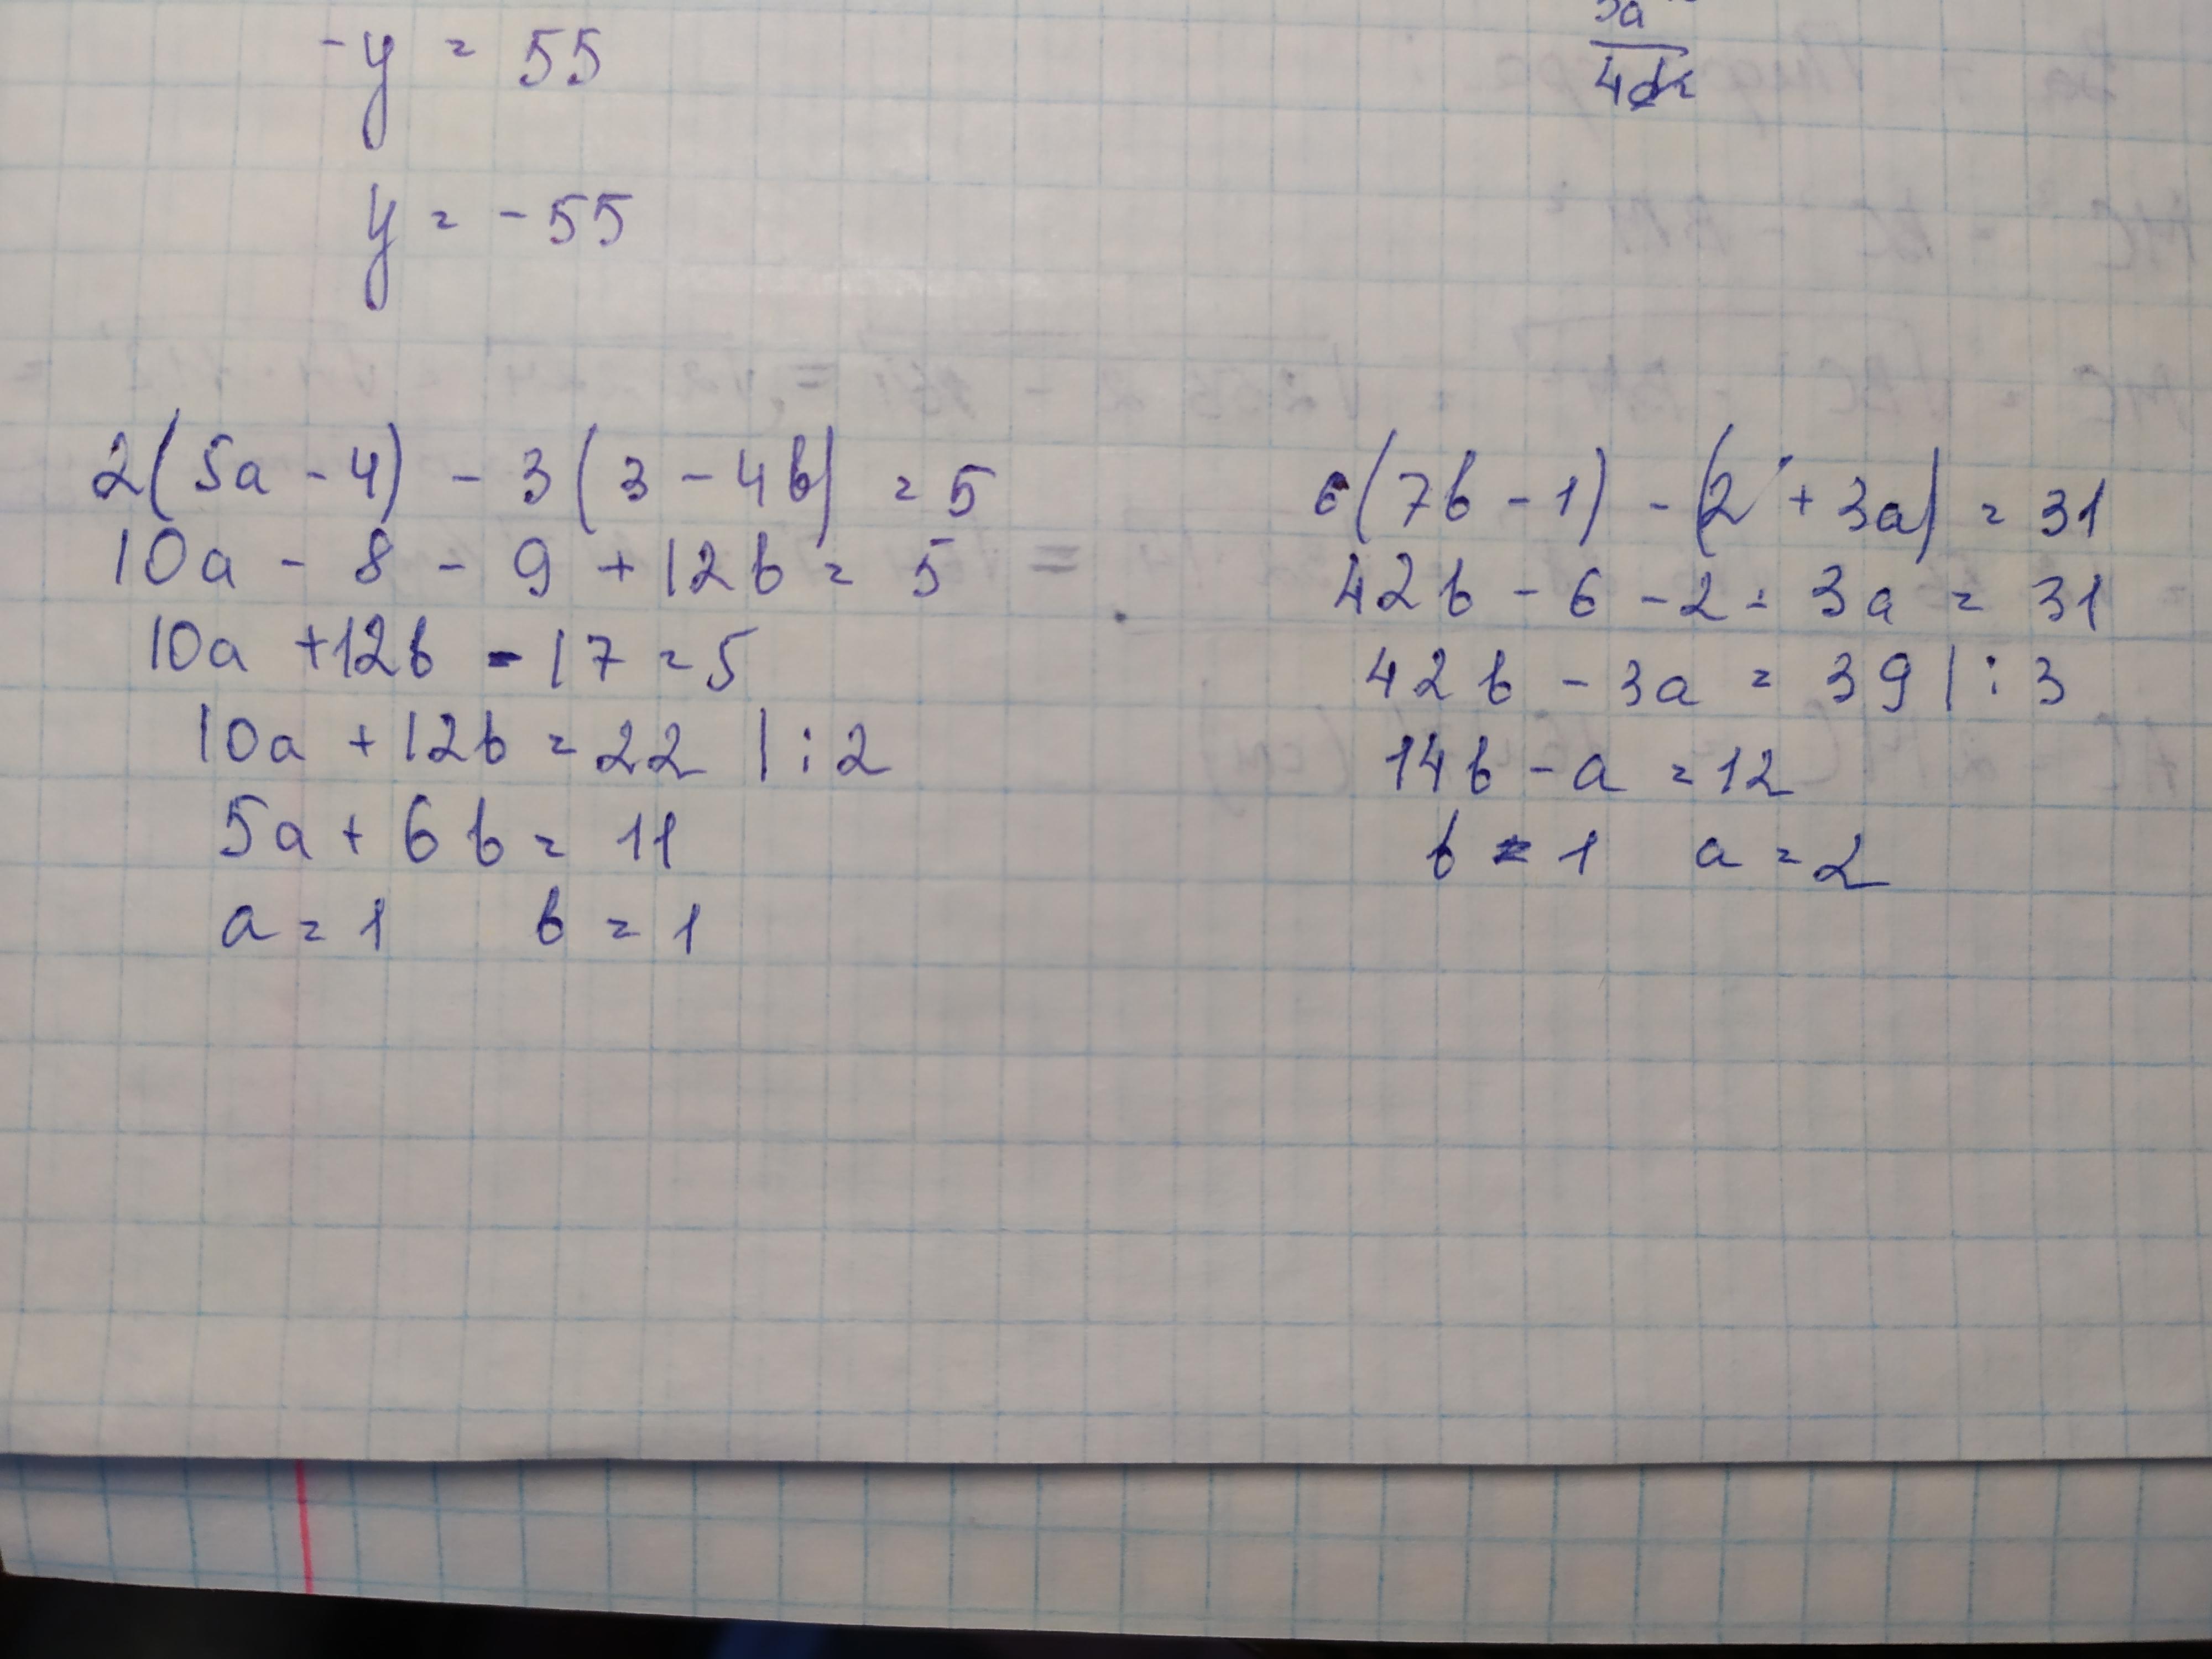 -y = 55
y = -55
2(5a - 4) - 3(3 - 4b) = 5
10a - 8 - 9 + 12b = 5
10a + 12b - 17 = 5
10a + 12b = 22 | : 2
5a + 6b = 11
a = 1 b = 1
4
6(7b - 1) - (2 + 3a) = 31
42b - 6 - 2 - 3a = 31
42b - 3a = 39 | : 3
14b - a = 12
b = 1 a = 2